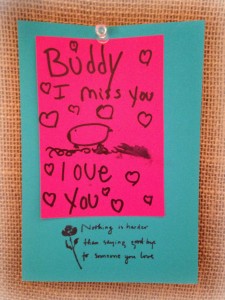 Buddy
I miss you
I love
You
Nothing is harder
than saying good bye
to someone you love